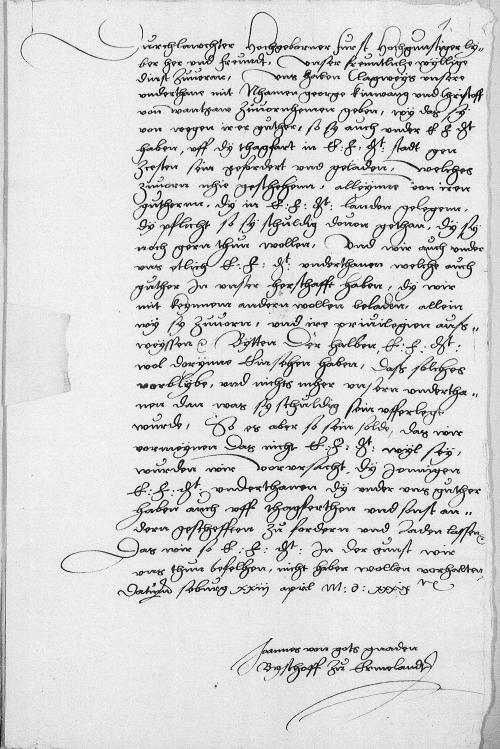 Durchlawchter Hochgeborner furst Hochgunstiger ly-
ber her und freundt, Unser freuntliche wyllige
dinst zuuoran, Uns haben clagweys unsere
underthane mit Nhamen george und Christoff
von zuuornhemen geben, wy das sy
von wegen irer guther, so sy auch under E F Dt
haben, uff dy thagfart in E: F: Dt: stadt gen
sein gefordert und geladen, welches
zuuorn nhie geschehenn, alleynne von iren
guthernn, dy in E: F: Dt: landen gelegenn,
dy pflicht so sy schuldig douon gethan, dy sy
noch gern thun wollen, Und wir auch under
uns etlich E: F: Dt: underthanen welche auch
guther In unser herschafft haben, dy wir
mit keynnem andern wollen beladen, allein
wy sy zuuorn, und ire priuilegien auss-
weyssen Bytten Der halben E: F: Dt:
wol dorynne Einsehen haben, Dass solches
vorblybe, und nichts mher unsern undertha-
nen dan was sy schuldig sein ufferlegt
wurde, So es aber so sein solde, das wir
vormeynen Das nicht E: F: Dt: wyl sey,
wurden wir vorursacht, dy Jennigen
E: F: Dt: underthanen dy under uns guther
haben auch uff thagferthen und sonst an-
dern gescheften zu fordern und laden lassen
Das wir so E: F: Dt: In der gunst wir
uns thun befelhen, nicht haben wollen vorhalten,
Datum seburg xxiij april M: D: xxxix
Joannes von gots gnaden
Byschoff zu Ermelandt